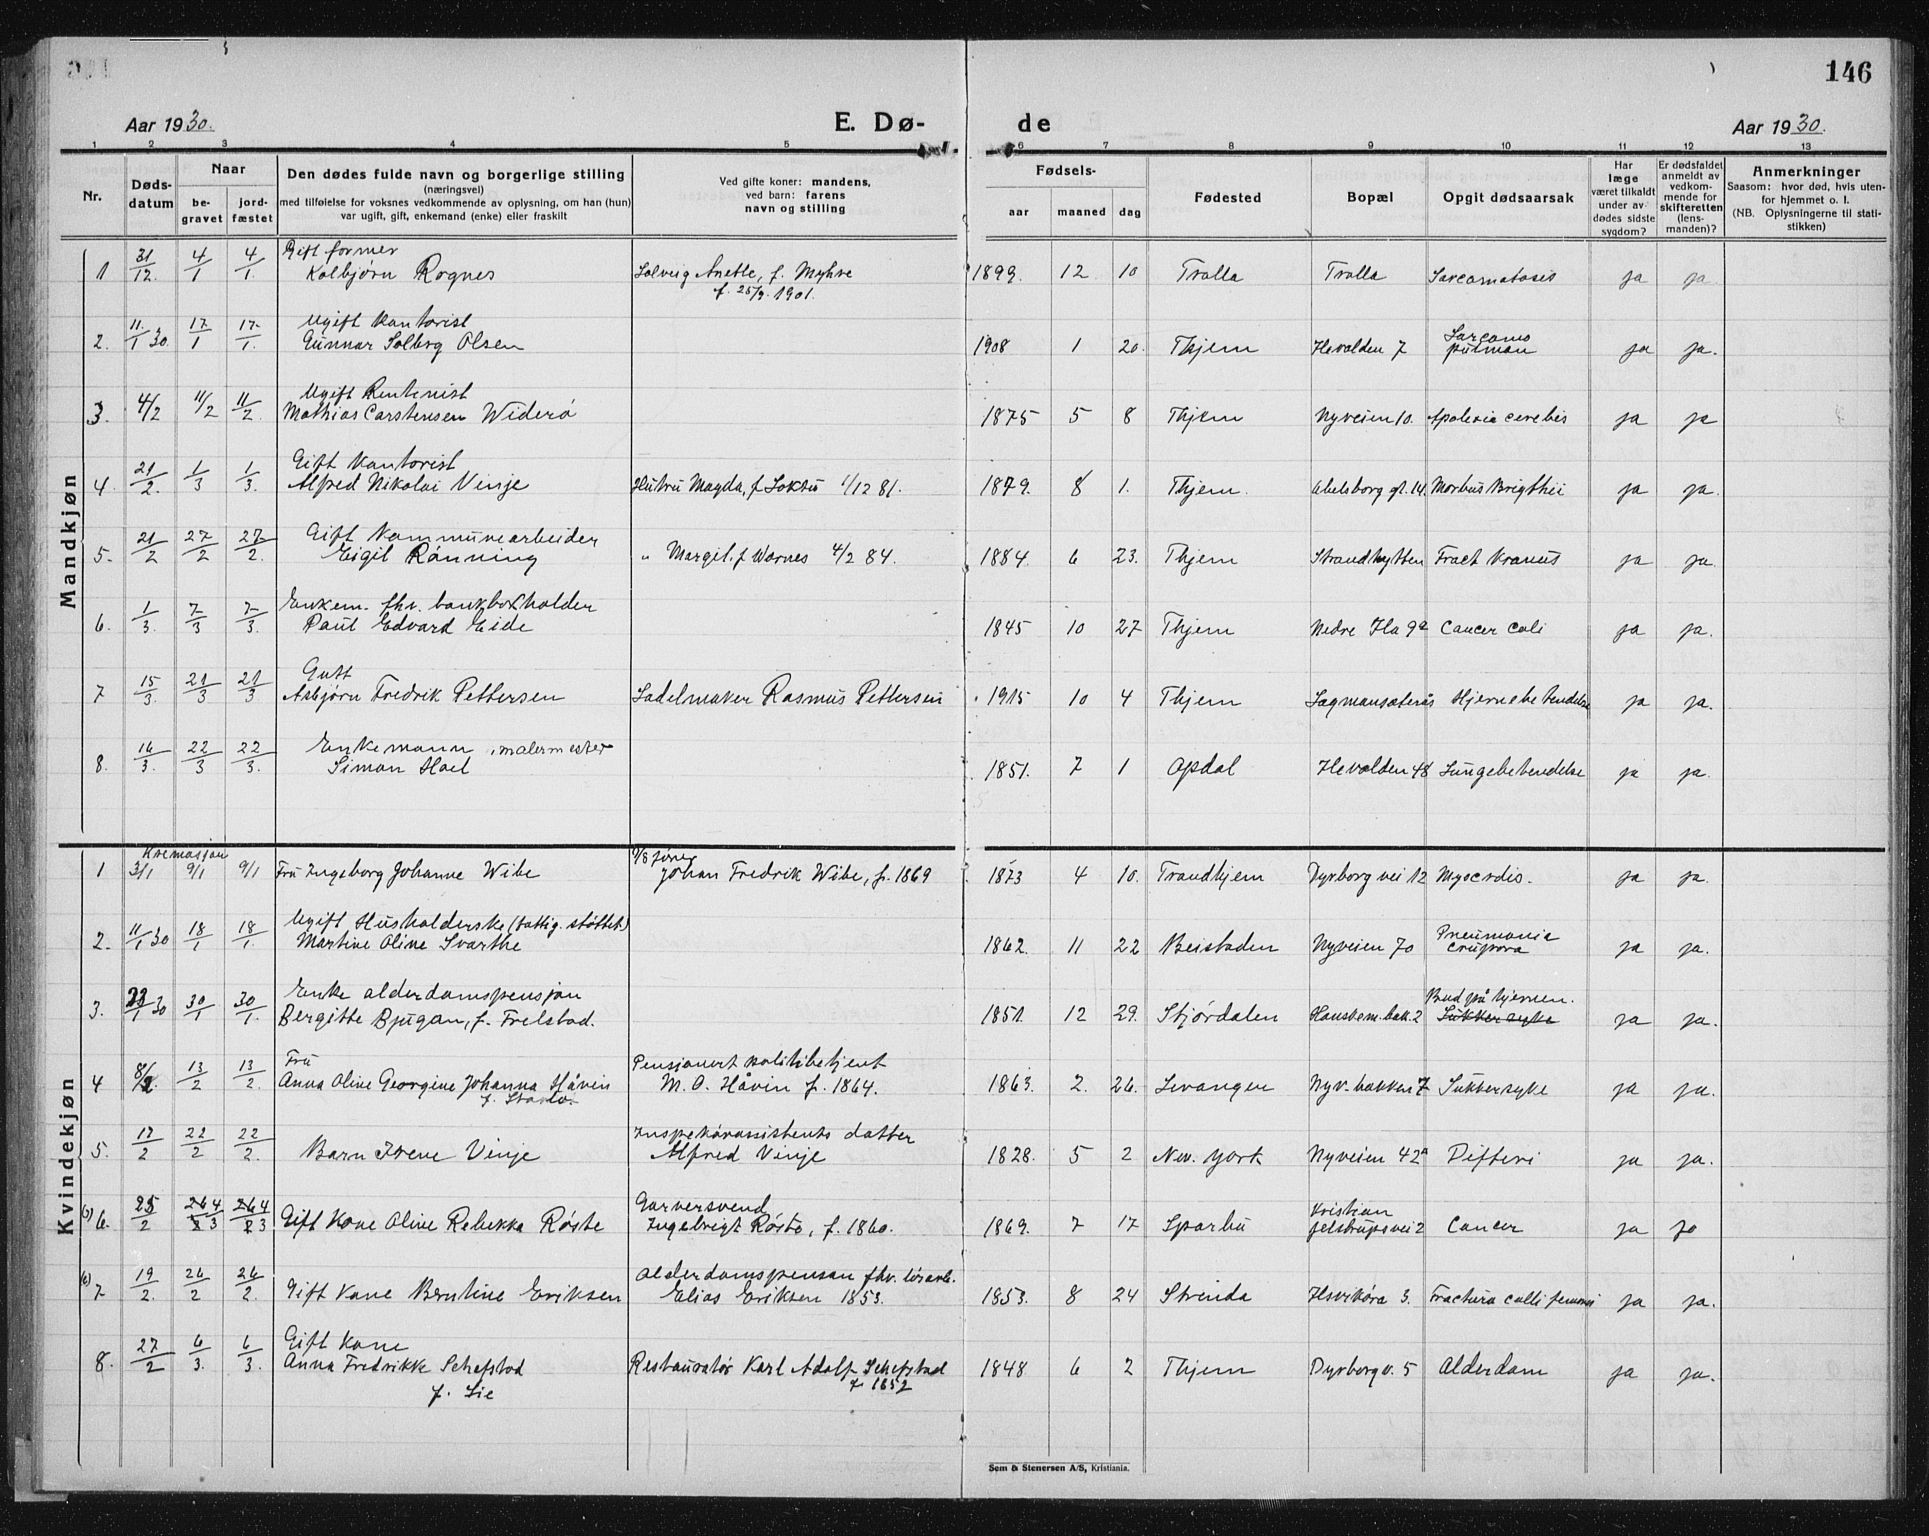 146
Aar 1930.
E. Dø-
de
Aar 1930.
1 2 3 3 4 5 6 7 8 9 10 11 12 13
Nr.
Døds-
datum
Naar
be-
gravet
jord-
fæstet
Den dødes fulde navn og borgerlige stilling
(næringsvei)
med tilføielse for voksnes vedkommende av oplysning, om han (hun)
var ugift, gift, enkemand (enke) eller fraskilt
Ved gifte koner: mandens,
ved barn: farens
navn og stilling
Fødsels-
aar
maaned
dag
Fødested
Bopæl
Opgit dødsaarsak
Har
læge
været tilkaldt
under av-
dødes sidste
sygdom?
Er dødsfaldet
anmeldt av
vedkom-
mende for
skifteretten
(lens-
manden)?
Anmerkninger
Saasom: hvor død, hvis uten-
for hjemmet o. l.
(NB. Oplysningerne til stati-
stikken)
Mandkjøn
Gift former
1 31/12. 4/1 4/1. Kolbjørn Rognes Solveig Anette, f. Myhre 1899. 12 10 Trolla Trolla Sarcomatosis ja ja.
f. 25/9. 1901.
Ugift Kontorist
2. 11/1 30. 17/1 17/1. Gunnar Solberg Olsen 1908 1 20. Thjem Ilevolden 7 Sarcoma pulmon ja ja.
Ugift Rentenist
3. 4/2 11/2 11/2. Mathias Carstensen Widerö 1875 5 8 Thjem Nyveien 10. Apolexia cerebis ja ja
Gift Kontorist
4. 21/2. 1/3 1/3. Alfred Nikolai Vinje Hustru Magda, f. Soktu 1/12 81. 1879. 8 1. Thjem. Abelsborg gt. 14. Morbus Brigthii ja ja.
Gift Kommunearbeider
5. 21/2 27/2 27/2. Eigil Rønning " Margit, f. Warnes 4/2 84. 1884. 6 23. Thjem Strandhytten Fract Kranus ja ja.
Enkem. fhv. bankbokholder
6. 1/3. 7/3 7/3. Paul Edvard Eide 1845 10 27 Thjem Nedre Ila 9a Cancer coli ja ja.
Gutt
7 15/3. 21/3 21/3 Asbjørn Fredrik Pettersen Sadelmaker Rasmus Pettersen 1915 10 4 Thjem Hjernebetendelse ja ja.
Enkemann, malermester
8. 16/3. 22/3 22/3. Simon Hoel 1851. 7 1 Opdal Ilevolden 48 Lungebetendelse ja ja.
Kvindekjøn
Kremasjon
1 3/1 9/1 9/1 Fru Ingeborg Johanne Wibe Johan Fredrik Wibe, f. 1869 1873 4 10. Trondhjem Dyrborg vei 12 Myocrdis. ja ja.
Ugift Husholderske (fattig. støttet)
2. 11/1 30 18/1 18/1. Martine Oline Svarthe 1862. 11 22 Beistaden Nyveien 70 Pneumonia crupora ja ja.
Enke alderdomspensjon
3. 23/1 30 30/1 30/1. Bergitte Bjugan, f. Frelstad. 1851. 12 29. Stjórdalen Hanskem.bak. 2 Blod på hjernen. Sukkersyke ja ja.
Fru Pensjonert politibetjent
4 8/2. 13/2 13/2. Anna Oline Georgine Johanna Håvin M. O. Håvin f. 1864. 1863. 2. 26. Levanger Nyv. bakken 7 Sukkersyke ja ja.
Inspekørassistents datter
5. 17/2 22/2 22/2. Barn Irene Vinje Alfred Vinje 1828. 5 2 New. York Nyveien 42a Difteri ja ja.
Garversvend
(5) 6. 25/2 26 4/2 3 26 4/2 3 Gift Kone Oline Rebekka Røste Ingebrigt Røste, f. 1860. 1869. 7 17 Sparbu Kristian Jelstrupsvei 2 Cancer ja ja
Alderdomspension fhv. løsarb.
(6) 7 19/2. 26/2 26/2. Gift Kone Berntine Eriksen Elias Eriksen 1853. 1853. 8 24 Strinda Ilsvikøra 3. Fractura colli femoris ja ja.
Gift Kone
8. 27/2 6/3. 6/3. Anna Fredrikke Schefstad Restauratør Karl Adolf Schefstad 1848 6 2 Thjem Dyrborgv. 5 Alderdom ja ja.
f. Lie f. 1852
Søm & Stenersen A/S, Kristiania.